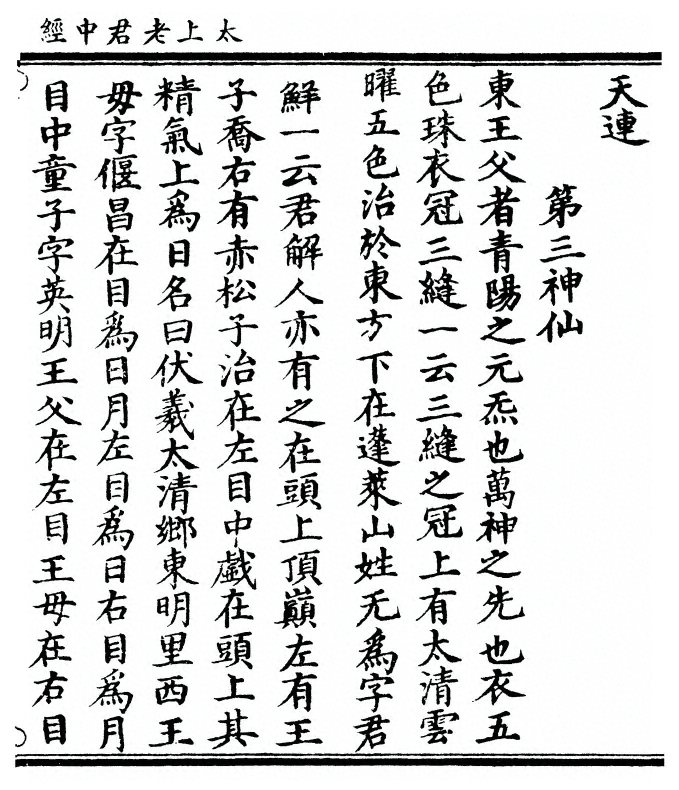 太上老君中經
天連
第三神仙
東王父者青陽之元炁也萬神之先也衣五
色珠衣冠三縫一云三縫之冠上有太清雲
曜五色治於東方下在蓬萊山姓无為字君
鮮一云君解人亦有之在頭上頂巔左有王
子喬右有赤松子治在左目中戲在頭上其
精氣上為日名曰伏羲太清鄉東明里西王
毋字偃昌在目為日月左目為日右目為月
目中童子字英明王父在左目王毋在右目